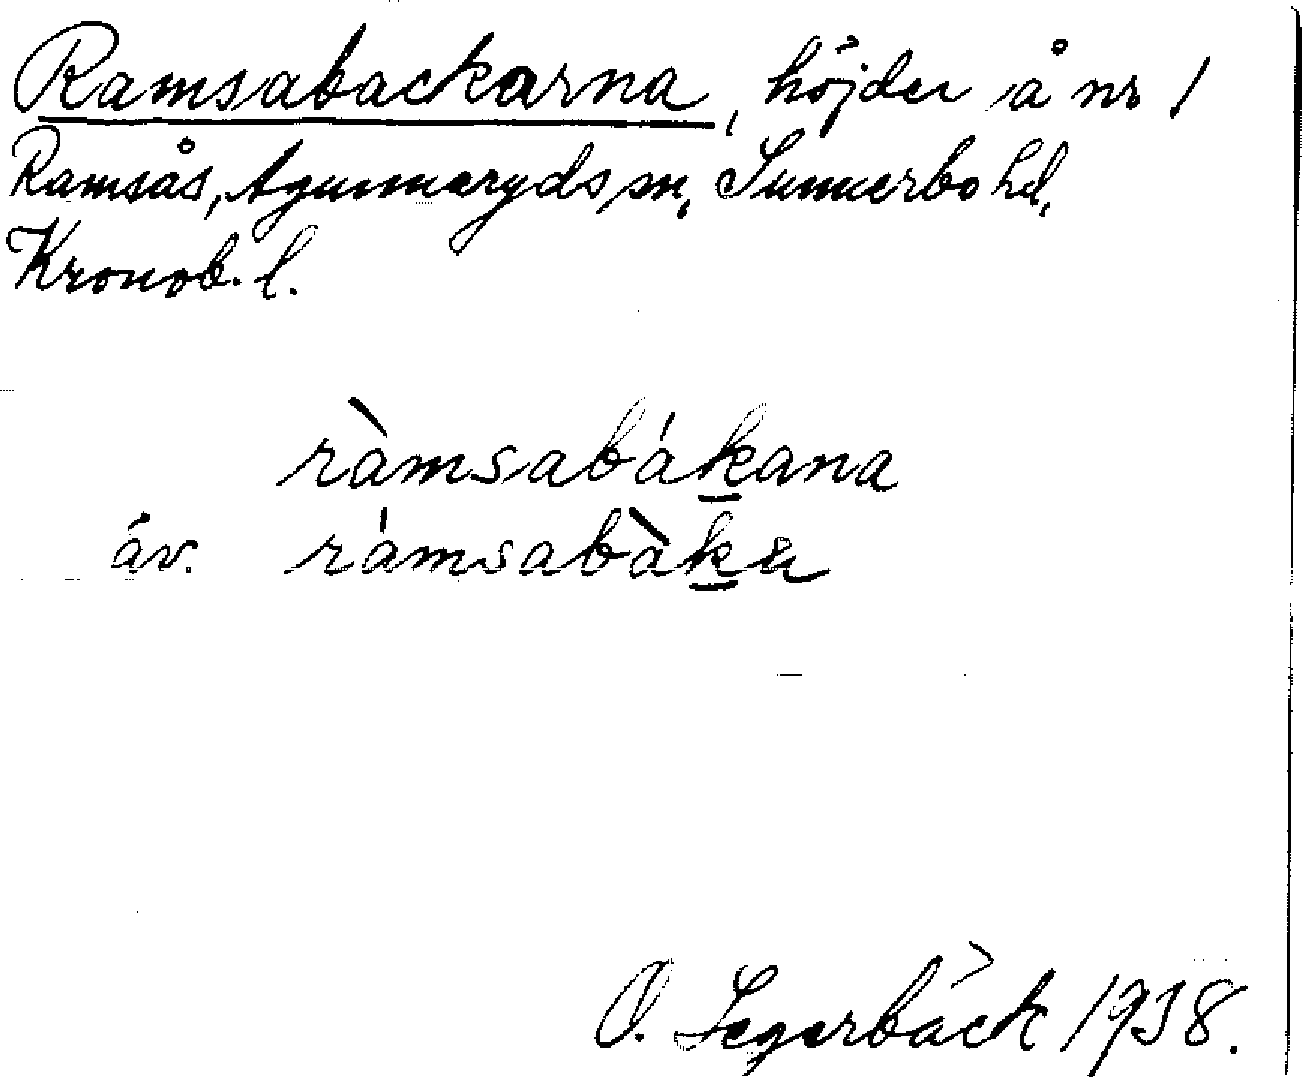 Ramsabackarna, höjder å nr 1
Ramsås, Agunnaryds sn, Sunnerbo hd,
Kronob. l.
ràmsabákana
äv. rámsabàku
O. Segerbäck 1938.